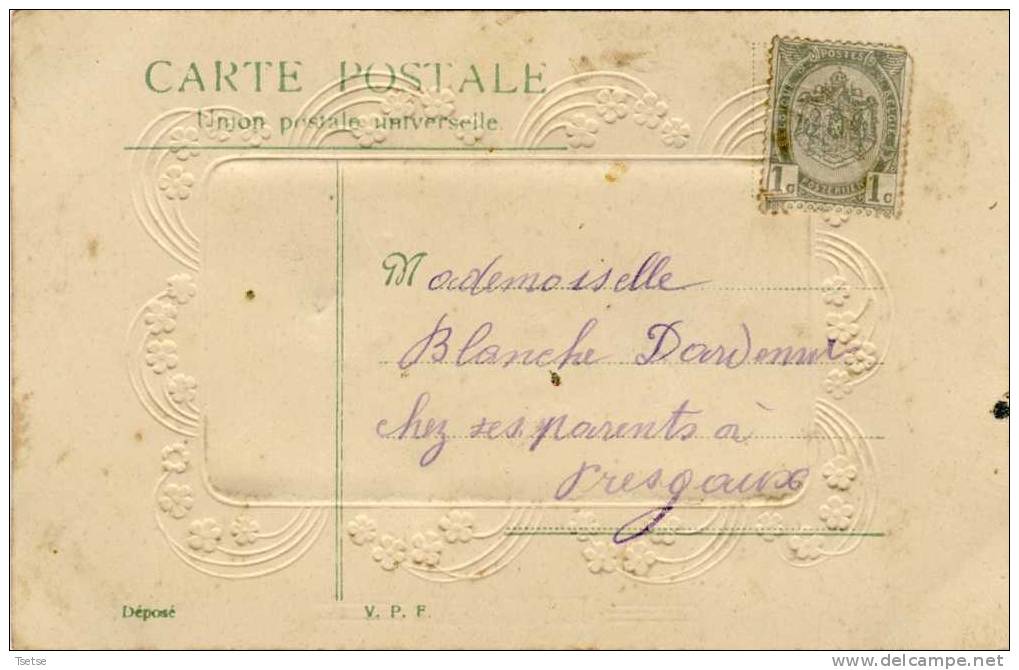 CARTE POSTALE
Union postale universelle.
POSTES
1c POSTERIJEN 1c
Mademoiselle
Blanche Dardenne
chez ses parents à
Presgaux
Déposé
V. P. F.
Tsetse
delcampe.net